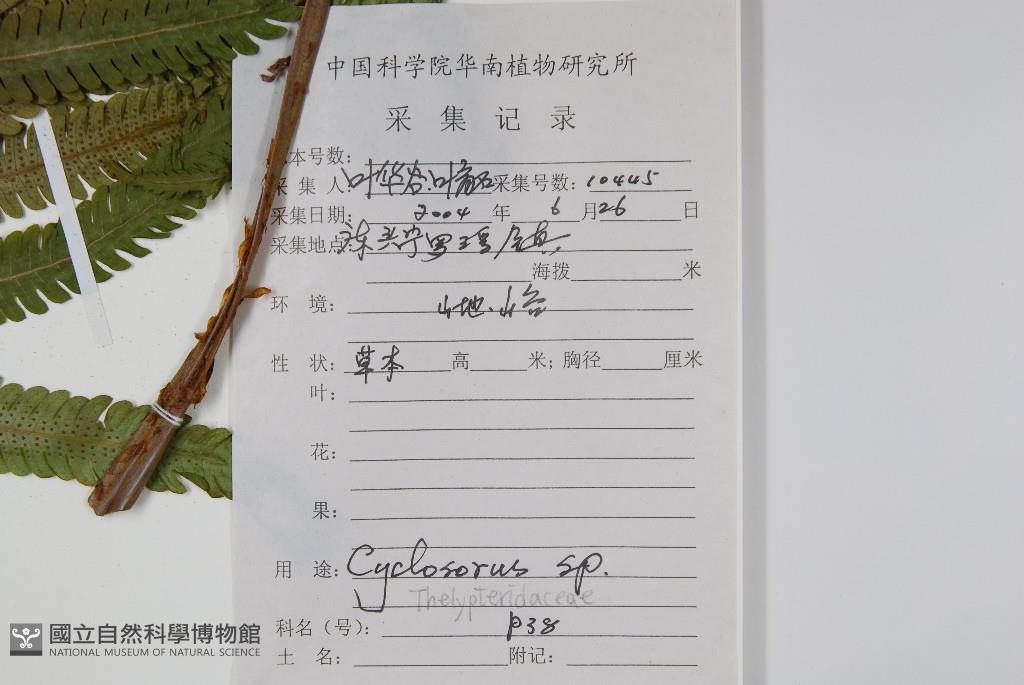 中国科学院华南植物研究所
采集记录
本号数：
采集人：叶华谷.叶 采集号数：10445
采集日期：2004年6月26日
采集地点： 兴宁罗 镇
海拨 米
环境：山地.山谷
性状：草本 高 米；胸径 厘米
叶：
花：
果：
用途：Cyclosorus sp.
Thelypteridaceae
科名（号）：P38
土名： 附记：
國立自然科學博物館
NATIONAL MUSEUM OF NATURAL SCIENCE